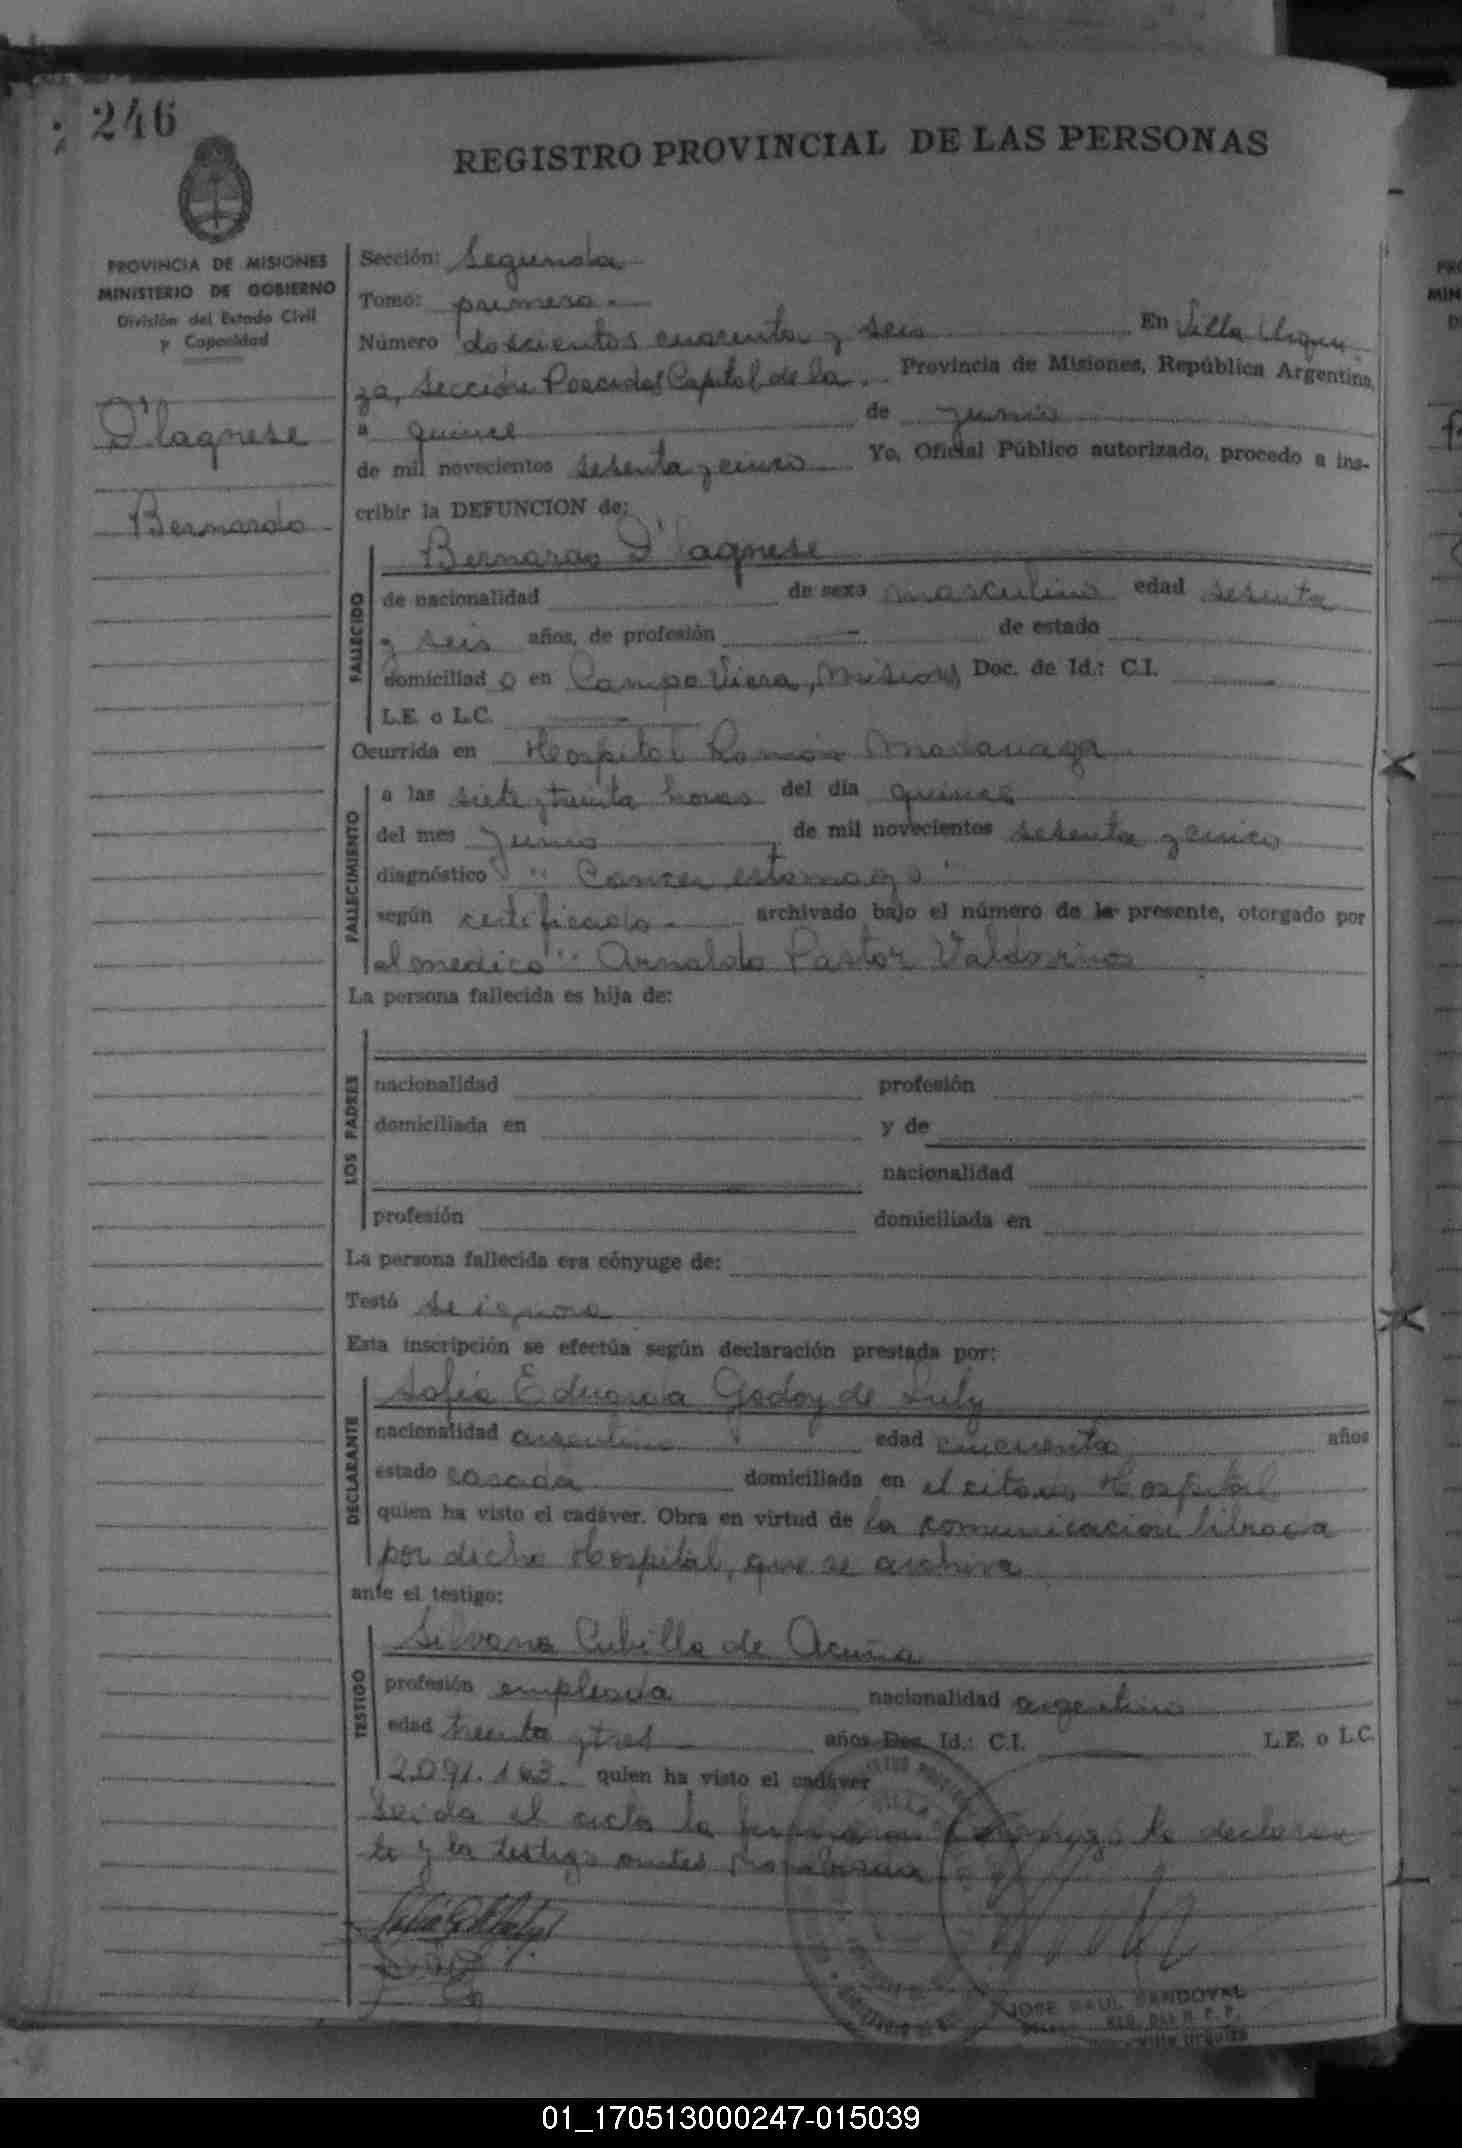 246
REGISTRO PROVINCIAL DE LAS PERSONAS
PROVINCIA DE MISIONES
MINISTERIO DE GOBIERNO
División del Estado Civil
y Capacidad
D'lagnese
Bernardo
Sección: Segunda
Tomo: primero.-
Número doscientos cuarenta y seis En Villa Urqui
za, Sección Posadas Capital de la Provincia de Misiones, República Argentina,
a quince de junio
de mil novecientos sesenta y cinco Yo, Oficial Público autorizado, procedo a ins-
cribir la DEFUNCION de:
Bernardo D'lagnese
FALLECIDO
de nacionalidad de sexo masculino edad sesenta
y seis años, de profesión — de estado
domiciliad o en Campo Viera, Misiones Doc. de Id.: C.I.
L.E. o L.C.
Ocurrida en Hospital Ramón Madariaga
FALLECIMIENTO
a las siete y treinta horas del día quince
del mes Junio de mil novecientos sesenta y cinco
diagnóstico "Cancer estomago"
según certificado.- archivado bajo el número de la presente, otorgado por
el medico Arnaldo Pastor Valdorinos
La persona fallecida es hija de:
LOS PADRES
nacionalidad profesión
domiciliada en y de
nacionalidad
profesión domiciliada en
La persona fallecida era cónyuge de:
Testó se ignora
Esta inscripción se efectúa según declaración prestada por:
DECLARANTE
Sofia Godoy de
nacionalidad argentina edad cincuenta años
estado casada domiciliada en el citado Hospital
quien ha visto el cadáver. Obra en virtud de la comunicacion librada
por dicho Hospital, que se archiva
ante el testigo:
TESTIGO
Silvana Cubilla de Acuña
profesión empleada nacionalidad argentina
edad treinta y tres años Doc. Id.: C.I. L.E. o L.C.
2.091.163. quien ha visto el cadáver
Leida el acta la firman conmigo la declaran
te y la testigo antes
JOSE RAUL SANDOVAL
Villa Urquiza
01_170513000247-015039